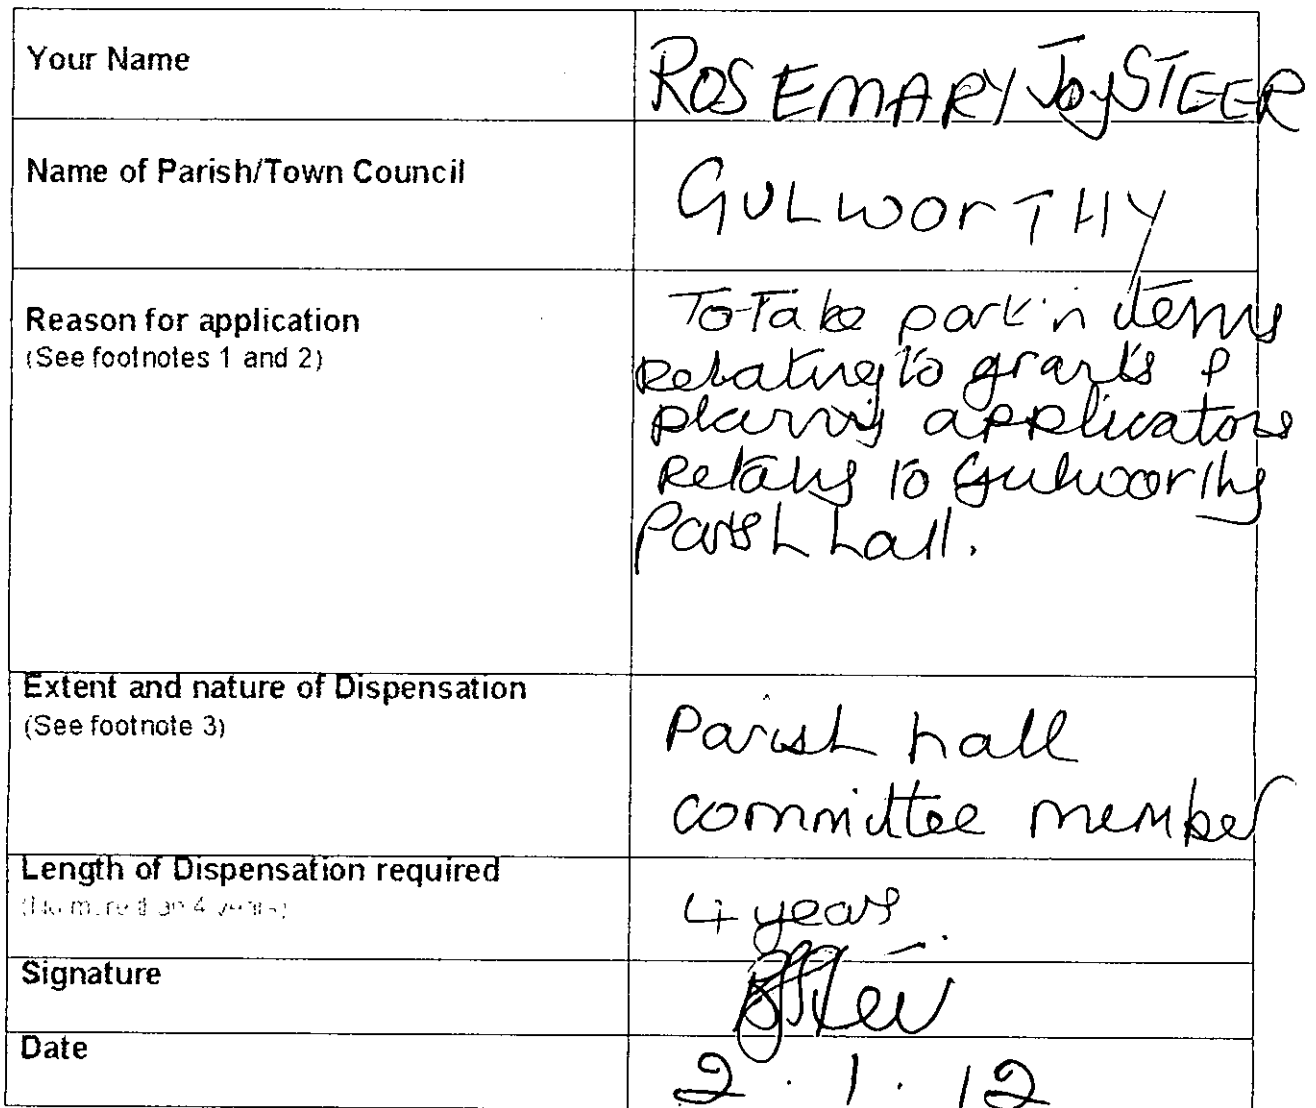 Your Name
ROSEMARY Joy STEER
Name of Parish/Town Council
GULWorTHY
Reason for application
(See footnotes 1 and 2)
To Take part in items
Relating to grants &
planning applications
Relating to Gulworthy
Parish hall.
Extent and nature of Dispensation
(See footnote 3)
Parish hall
committee member
Length of Dispensation required
(No more than 4 years)
4 years
Signature
Date
2 . 1 . 12